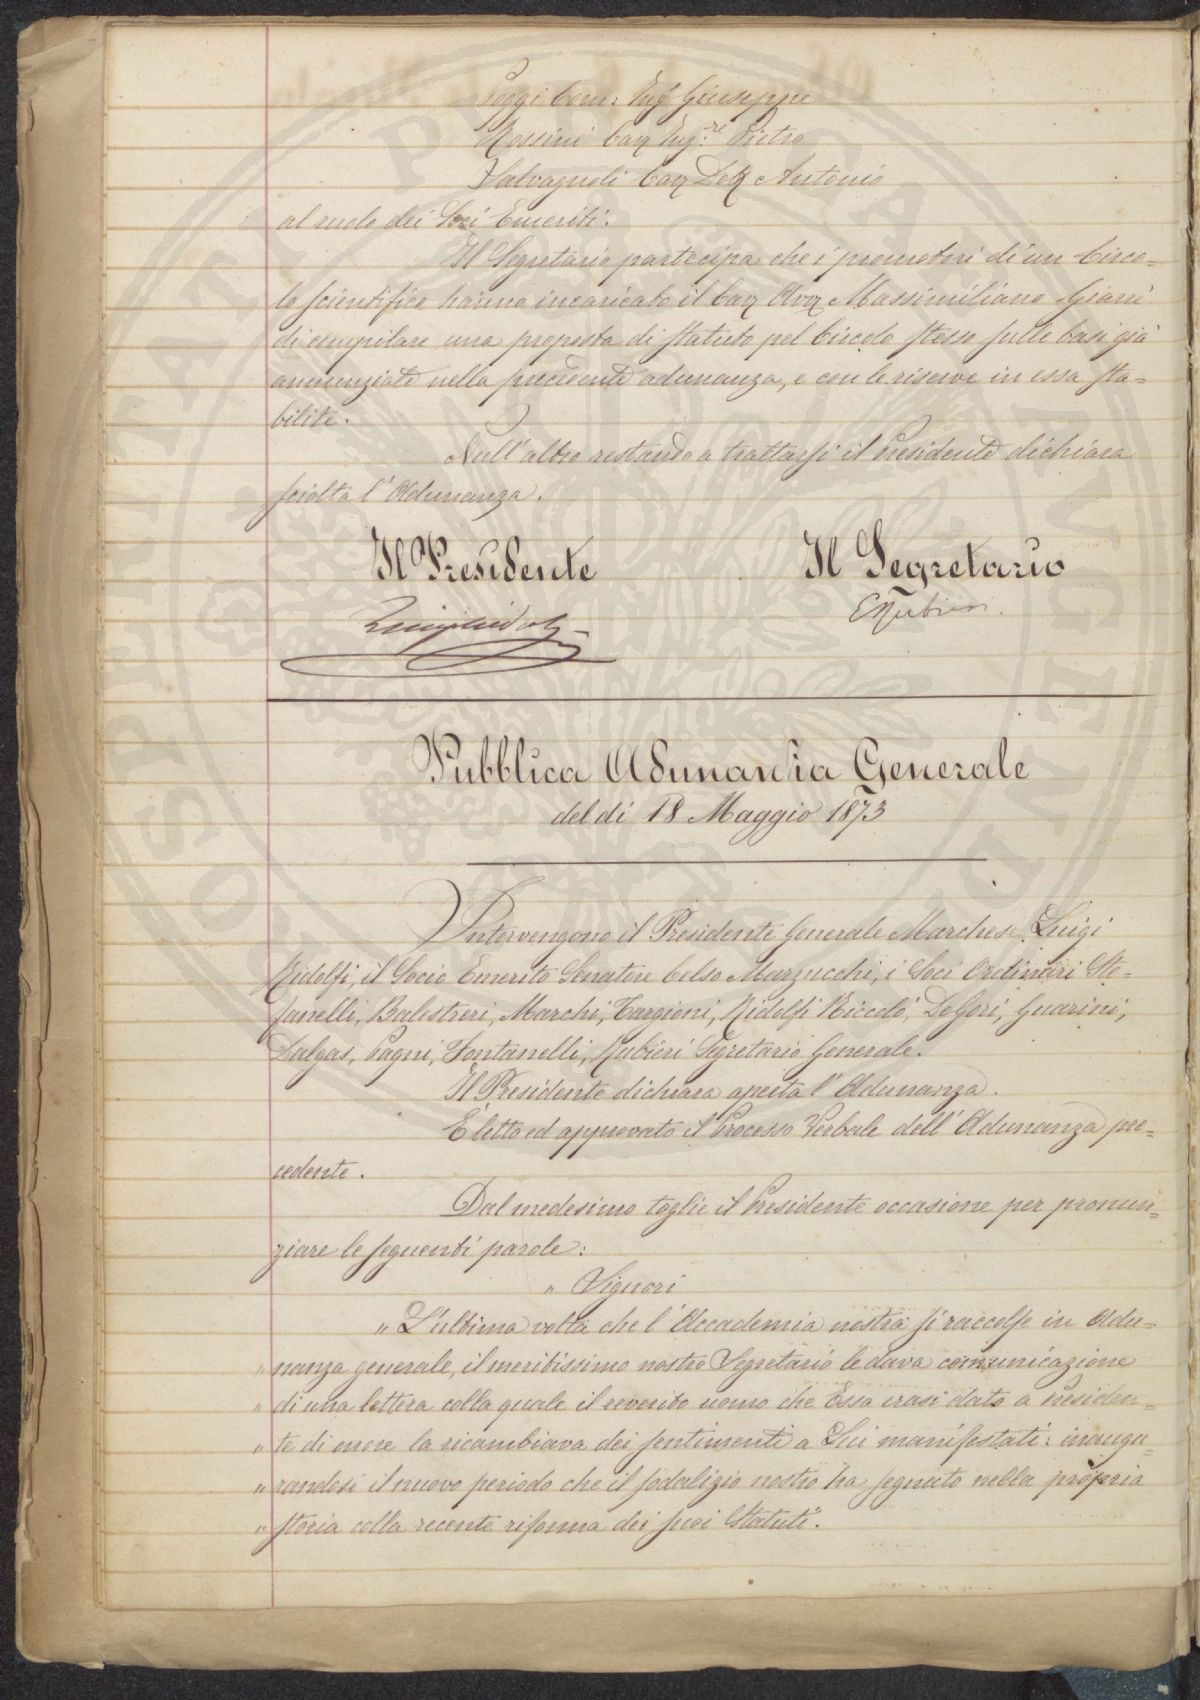 Poggi Com: Ing.e Giuseppe
Rossini Cav Ing.re Pietro
Salvagnoli Cav Dott Antonio
al ruolo dei Soci Emeriti.
Il Segretario partecipa che i promotori di un Circo-
lo scientifico hanno incaricato il Cav Avv Massimiliano Giarri
di compilare una proposta di statuto pel Circolo stesso sulle basi già
annunziate nella precedente adunanza, e con le riserve in essa sta-
bilite.
Null'altro restando a trattarsi il Presidente dichiara
sciolta l'Adunanza.
Il Presidente Il Segretario
LuigiRidolfi ERubieri
Pubblica Adunanza Generale
del dì 18 Maggio 1873
Intervengono il Presidente Generale Marchese Luigi
Ridolfi, il Socio Emerito Senatore Celso Marzucchi, i Soci Ordinari Ste-
fanelli, Balestreri, Marchi, Targioni, Ridolfi Niccolò, De Gori, Guarini,
Dalgas, Pagni, Fontanelli, Rubieri Segretario Generale.
Il Presidente dichiara aperta l'Adunanza.
È letto ed approvato il Processo Verbale dell'Adunanza pre-
cedente.
Dal medesimo toglie il Presidente occasione per pronun-
ziare le seguenti parole:
" Signori
" L'ultima volta che l'Accademia nostra si raccolse in Adu-
" nanza generale, il meritissimo nostro Segretario le dava comunicazione
" di una lettera colla quale il reverito uomo che Essa erasi dato a Presiden-
" te di onore la ricambiava dei sentimenti a Lui manifestati: inaugu-
" randosi il nuovo periodo che il sodalizio nostro ha segnato nella propria
" storia colla recente riforma dei suoi Statuti".
OSPERITATI PUBLICAE AUGENDAE